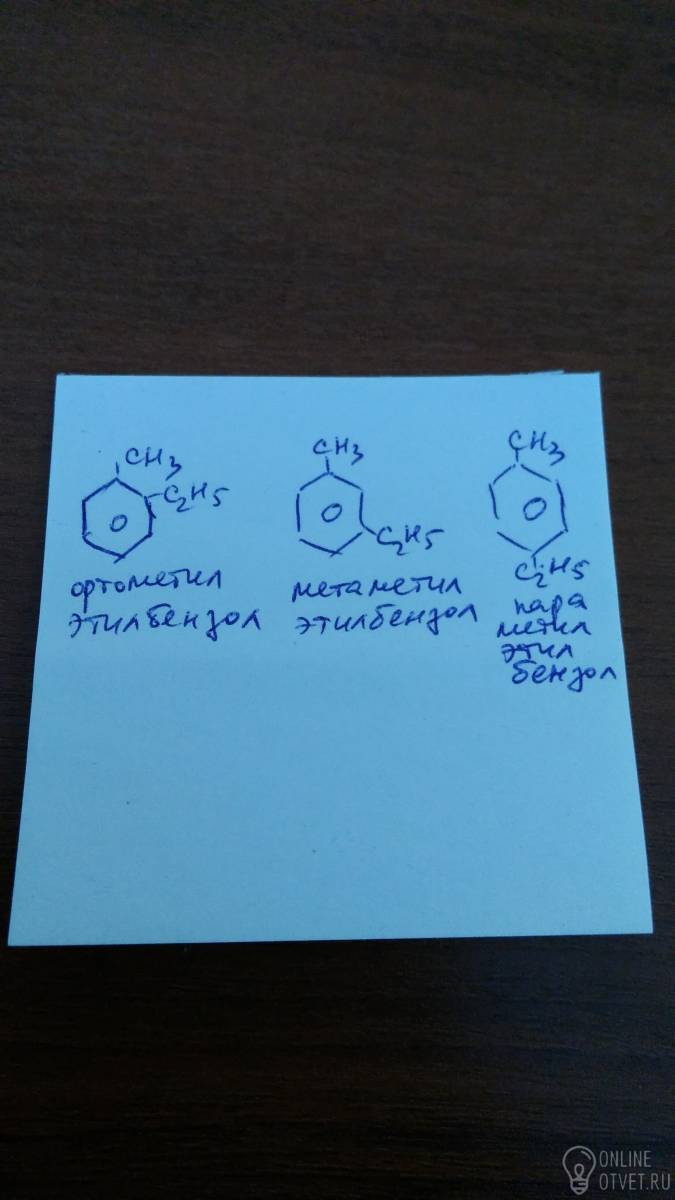 CH3
C2H5
ортометил
этилбензол
CH3
C2H5
метаметил
этилбензол
CH3
C2H5
пара
метил
этил
бензол
ONLINE
OTVET.RU